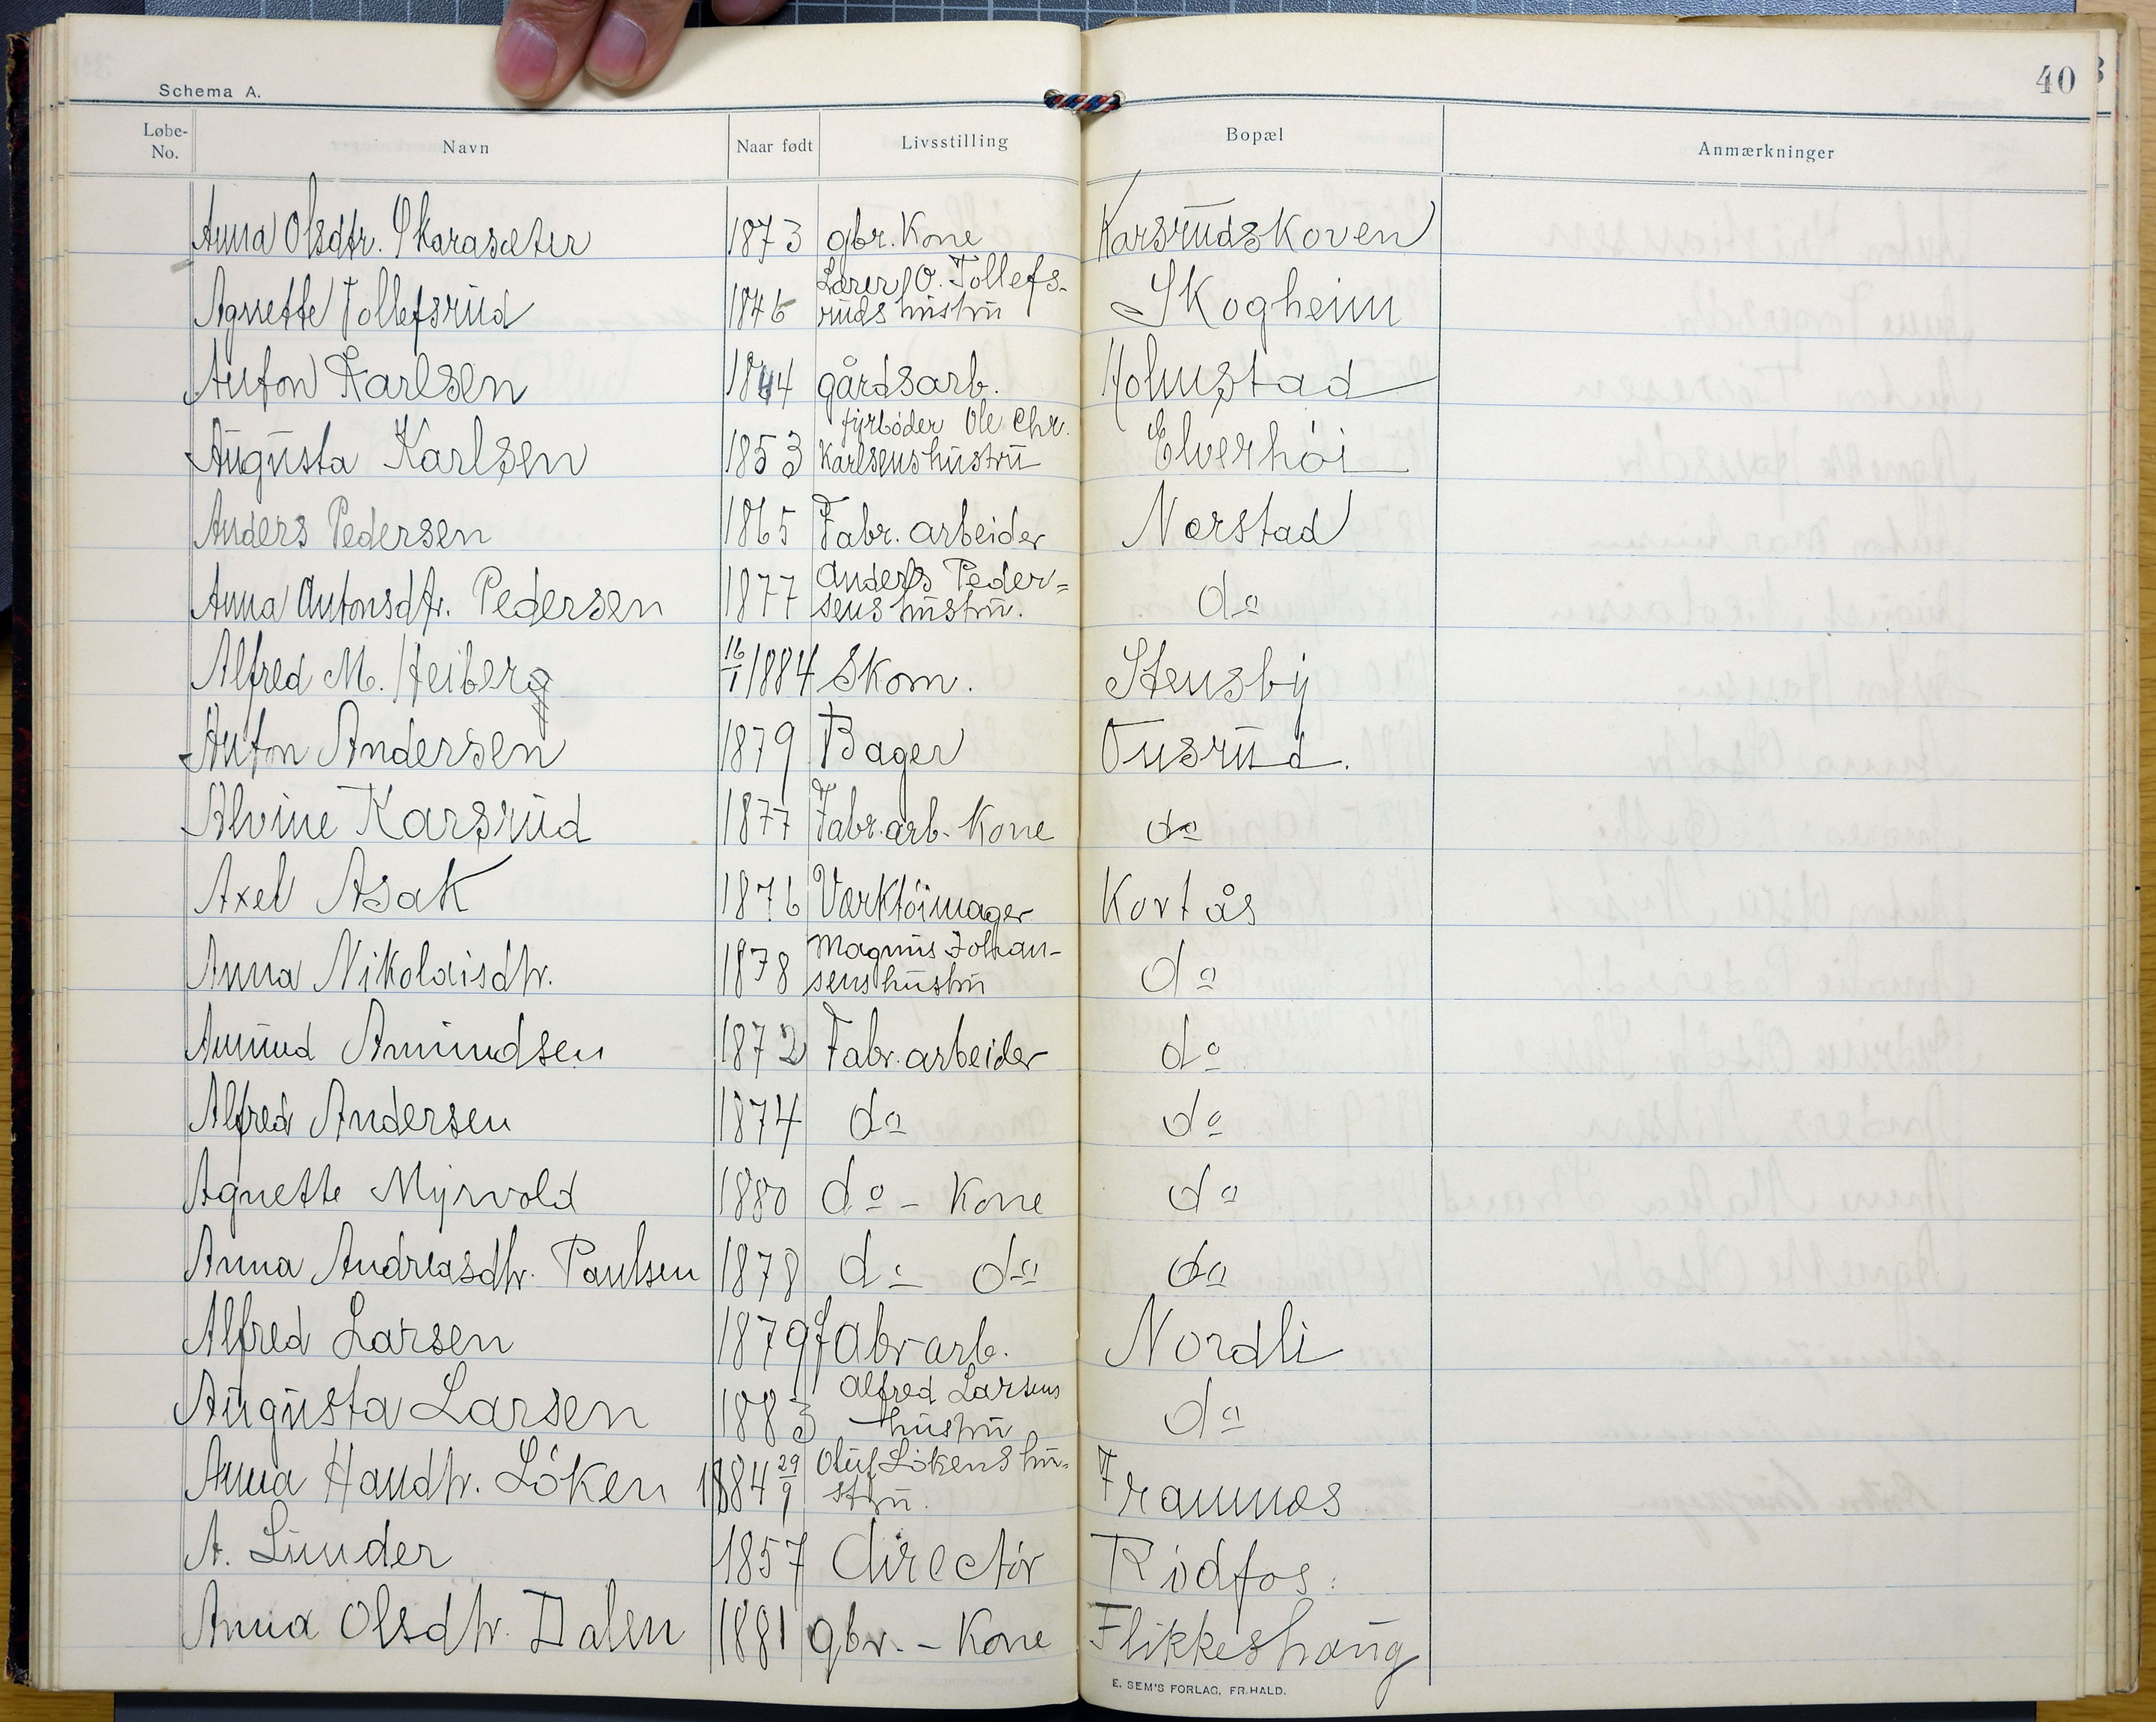 Schema A.
40
Løbe-No. Navn Naar født Livsstilling Bopæl Anmærkninger
Anna Olsdtr. Skarasæter 1873 gbr. Kone KarsrudsKoven
Lærer O. Tollefs-
Agnette Tollefsrud 1846 ruds hustru Skogheim
Anton Karlsen 1844 gårdsarb. Holmstad
fyrbøder Ole Chr.
Augusta Karlsen 1853 Karlsens hustru Elverhöi
Anders Pedersen 1865 Fabr. arbeider Nærstad
Anders Peder=
Anna Antonsdtr. Pedersen 1877 sens hustru. do
Alfred M. Heiberg 16/1 1884 Skom. Stensby
Anton Andersen 1879 Bager Onsrud.
Alvine Karsrud 1877 Fabr.arb. Kone do
Axel Asak 1876 Værktöimager Kortås
Magnus Johan-
Anna Nikolaisdtr. 1878 sens hustru do
Amund Amundsen 1872 Fabr. arbeider do
Alfred Andersen 1874 do do
Agnette Myrvold 1880 do - Kone do
Anna Andreasdtr. Paulsen 1878 do do do
Alfred Larsen 1879 fabr arb. Nordli
Alfred Larsens
Augusta Larsen 1883 hustru do
Oluf Lökens hu-
Anna Handtr. Löken 1884 29/9 stru. Framnæs
A. Lunder 1857 Directör Rödfos.
Anna Olsdtr. Dalen 1881 gbr. - Kone Flikkeshaug
E. SEM'S FORLAG, FR.HALD.